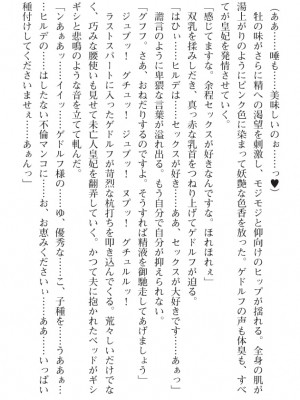 (ああ……唾も……美味しいのぉ……っ♥)
　牡の味がさらに精への渇望を刺激し、モジモジと仰向けのヒップが揺れる。全身の肌が
湯上がりのようにピンク色に染まって妖艶な色香を放った。ゲドルフの声も体臭も、すべ
てが皇妃を発情させていく。
「感じてますな。余程セックスが好きなんですな。ほれほれぇ」
　双乳を揉みしだき、真っ赤な乳首をつねり上げてゲドルフが迫る。
「はひぃ……ヒルデは……セックスが好き……ああ、セックスが大好きです……ぁぁっ」
　譫言のように卑猥な言葉が溢れ出る。もう自分で自分が抑えられない。
「グフフ。さあ、おねだりするのです。そうすれば精液を御馳走してあげましょう」
　ジュブッ！　グチュッ！　ジュブッ！　ヌプッ！　グチュルルッ！
　ラストスパートに入ったゲドルフが苛烈な杭打ちを叩き込んでくる。荒々しいだけでな
く、巧みな腰使いも見せて未亡人皇妃を翻弄していく。かつて夫に抱かれたベッドがギシ
ギシと悲鳴のような音を立てて軋んだ。
「ンあぁぁッ……イイッ……ゲドルフ様の……ゆ、優秀な……こ、子種を……うああぁ……
ヒルデの……はしたない不倫マンコに……お、お恵みくださいぃ……ああ……いっぱい
種付けしてくださいませぇ……ぁあんっ」